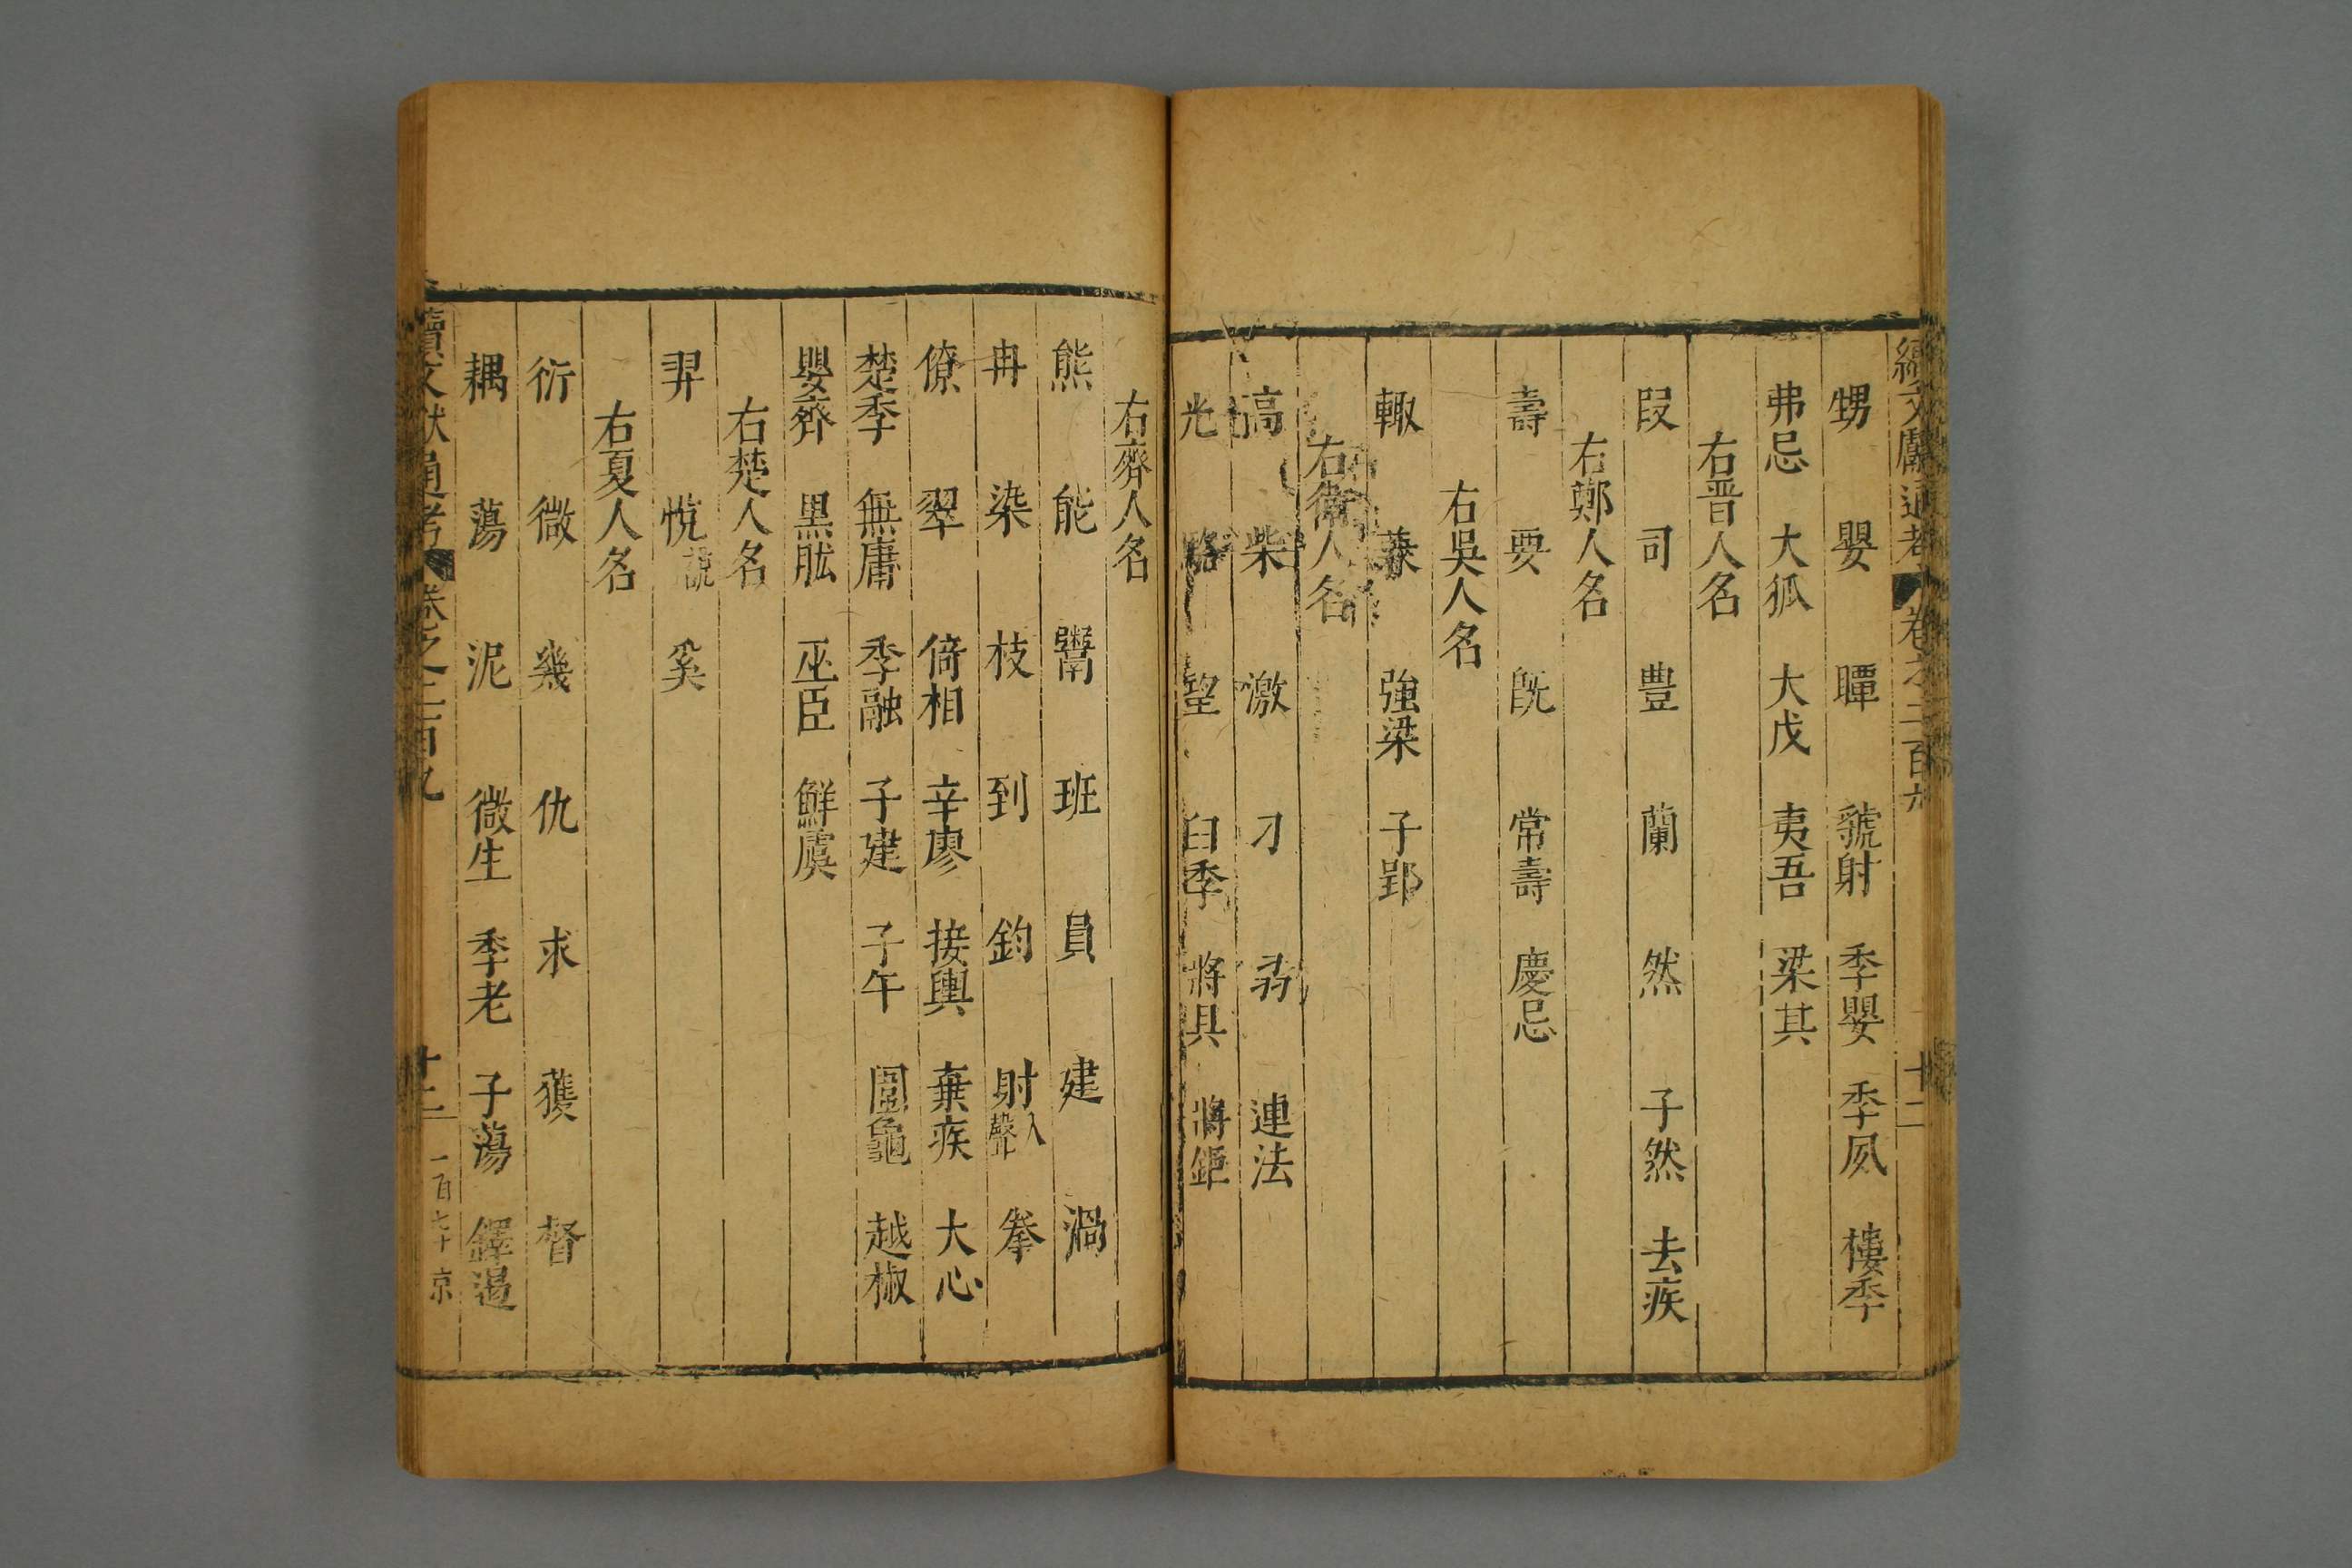 續文獻通考 卷之二百九 十二
甥 嬰 瞫 虢射 季嬰 季夙 樓季
弗忌 大狐 大戊 夷吾 梁其
右晋人名
段 司 豐 蘭 然 子然 去疾
右鄭人名
壽 要 旣 常壽 慶忌
右吳人名
輙 強梁 子郢
右衛人名
高 柴 激 刁 弱 連法
光 輅 望 臼季 將具 將鉅
右齊人名
熊 能 鬻 班 員 建 渦
冉 染 枝 到 鈞 射入聲 拳
僚 翠 倚相 辛廖 接輿 棄疾 大心
楚季 無庸 季融 子建 子午 圍龜 越椒
嬰齊 黒肱 巫臣 鮮虞
右楚人名
羿 悅 奚
右夏人名
衍 微 幾 仇 求 獲 督
耦 蕩 泥 微生 季老 子蕩 鐸遏
續文獻通考 卷之二百九 十二 一百七十 京